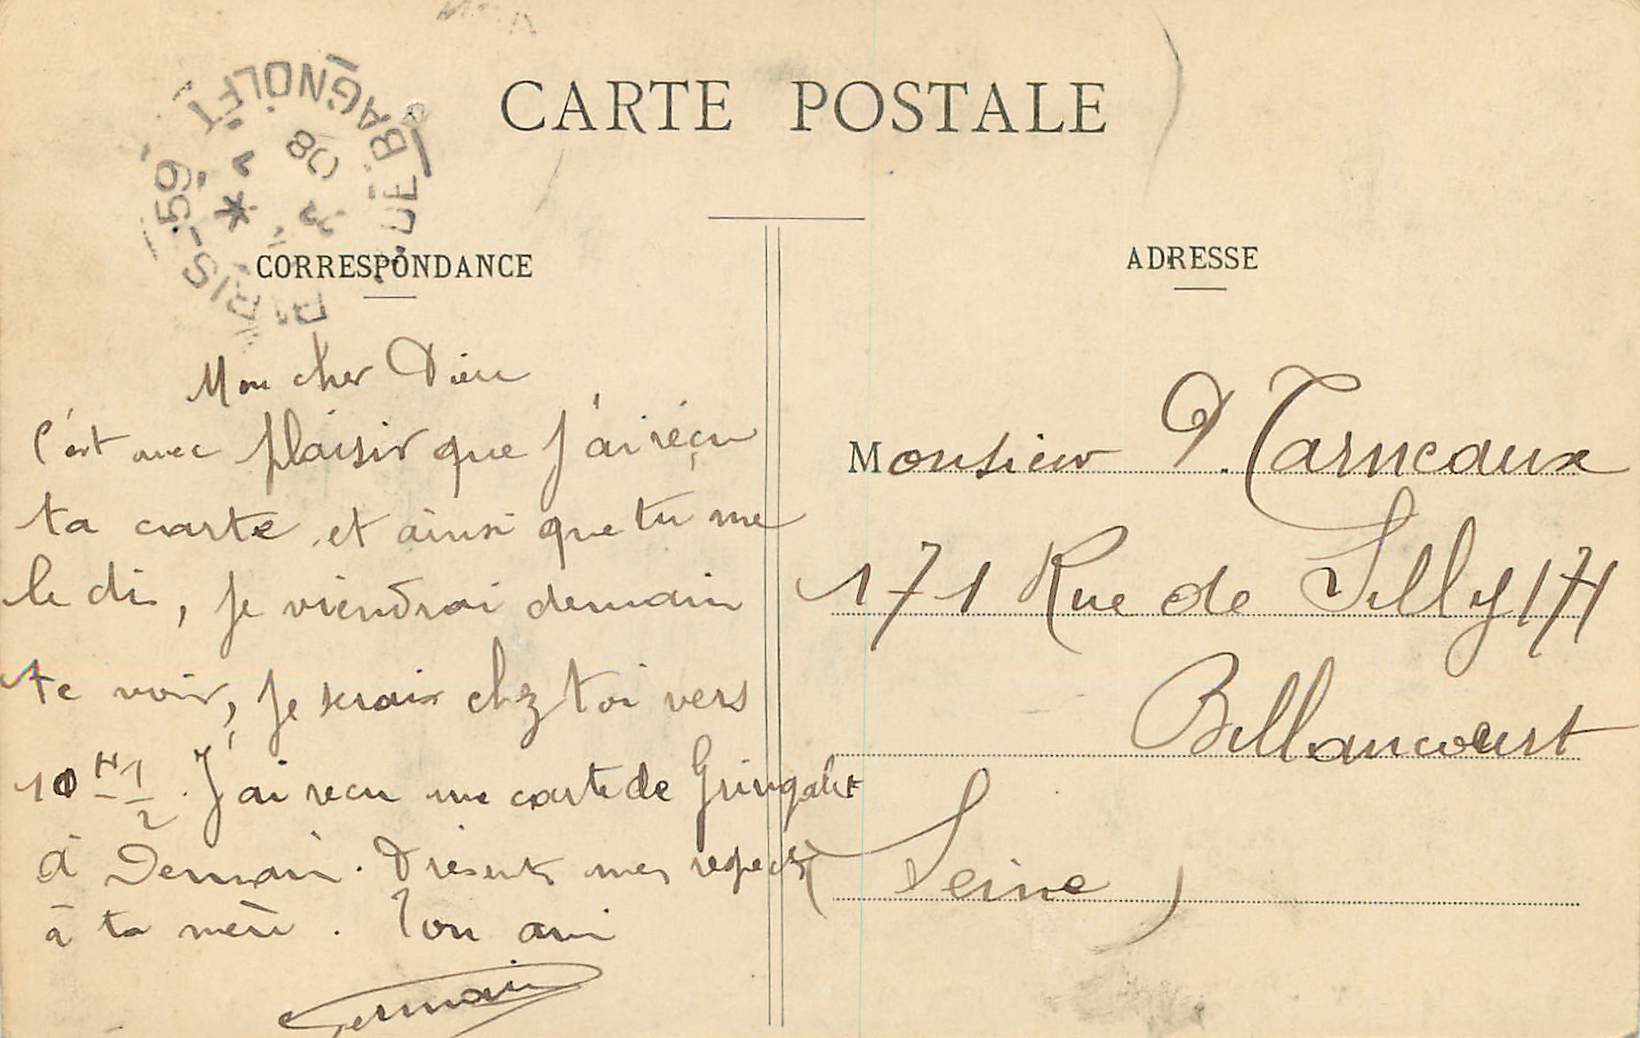 CARTE POSTALE
PARIS-59
RUE BAGNOLET
08
CORRESPONDANCE
Mon cher
C'est avec plaisir que j'ai reçu
ta carte et ainsi que tu me
le dis, je viendrai demain
te voir, je serais chez toi vers
10 H 1/2. J'ai recu une carte de Gringalet
à Demain. Présente mes respects
à ta mère. Ton ami
Germain
ADRESSE
Monsieur P. Carneaux
171 Rue de Silly 171
Billancourt
(Seine)